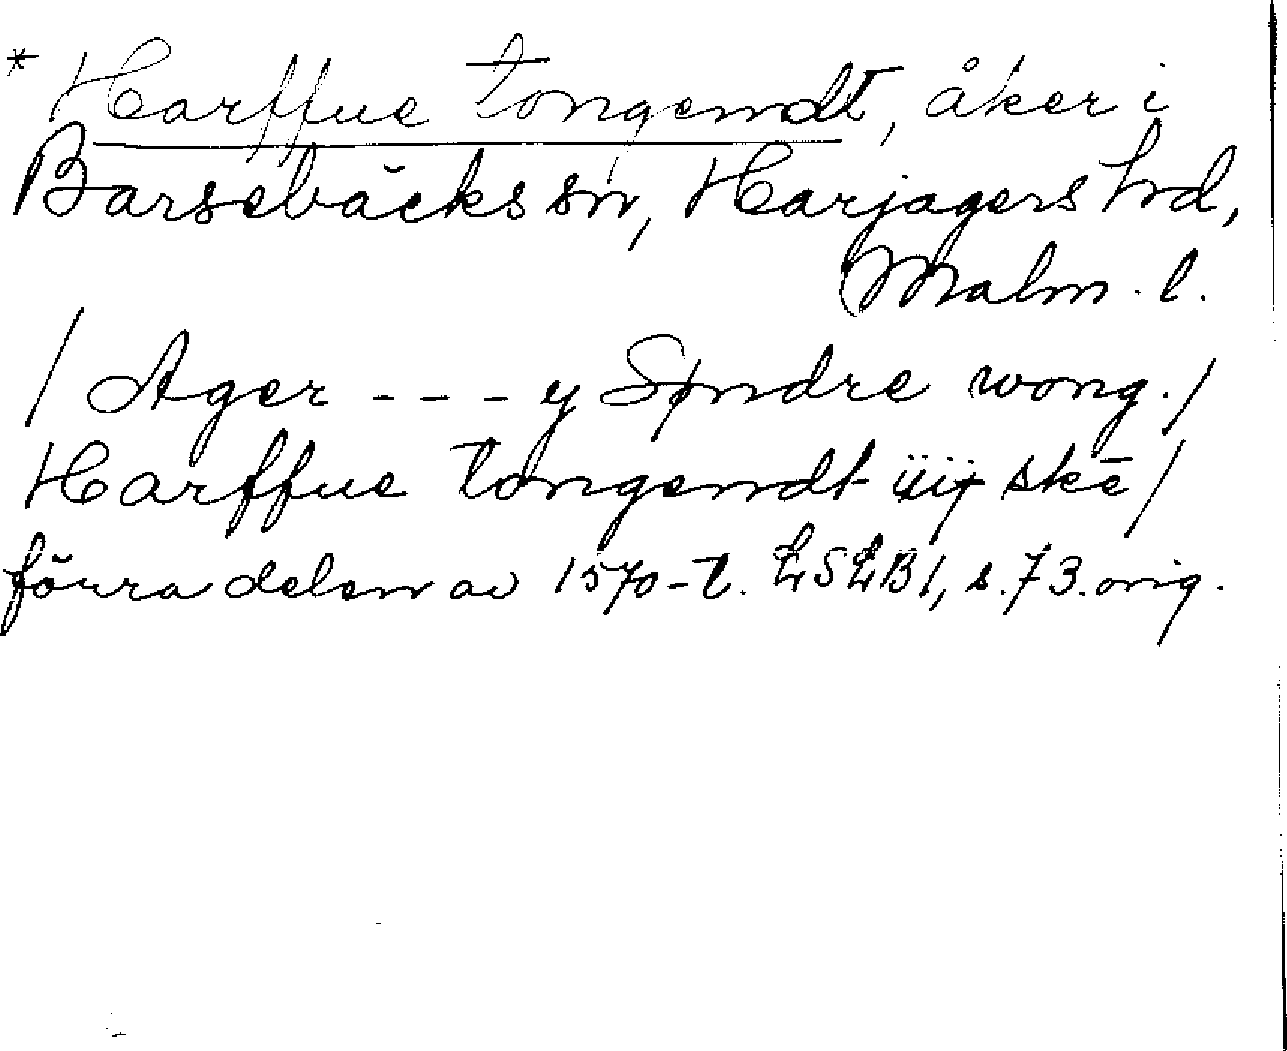 * Harffue tongendt, åker i
Barsebäcks sn, Harjagers hd,
Malm. l.
/ Ager - - - y Søndre wong. /
Harffue tongendt iiij skē /
förra delen av 1570-t. LSLB 1, s. 73. orig.